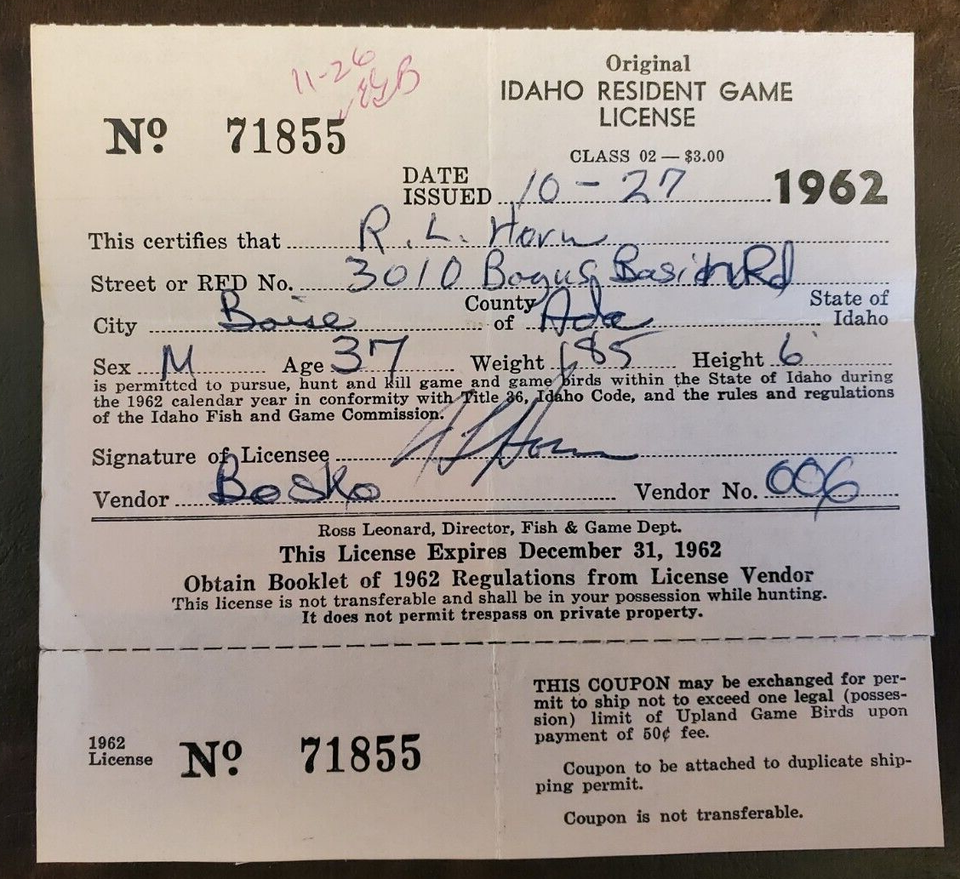 11-26
EGB
Original
IDAHO RESIDENT GAME
LICENSE
Nº 71855
CLASS 02 — $3.00
DATE
ISSUED 10 - 27 1962
This certifies that R. L. Horn
Street or RFD No. 3010 Bogus Basin Rd
City Boise County of Ada State of Idaho
Sex M Age 37 Weight 185 Height 6
is permitted to pursue, hunt and kill game and game birds within the State of Idaho during
the 1962 calendar year in conformity with Title 36, Idaho Code, and the rules and regulations
of the Idaho Fish and Game Commission.
Signature of Licensee R L Horn
Vendor Bosko Vendor No. 006
Ross Leonard, Director, Fish & Game Dept.
This License Expires December 31, 1962
Obtain Booklet of 1962 Regulations from License Vendor
This license is not transferable and shall be in your possession while hunting.
It does not permit trespass on private property.
1962
License Nº 71855
THIS COUPON may be exchanged for per-
mit to ship not to exceed one legal (posses-
sion) limit of Upland Game Birds upon
payment of 50¢ fee.
Coupon to be attached to duplicate ship-
ping permit.
Coupon is not transferable.